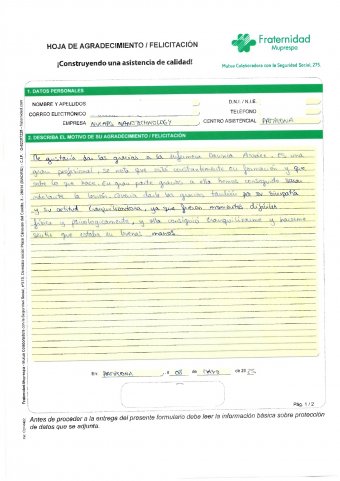 HOJA DE AGRADECIMIENTO / FELICITACIÓN
¡Construyendo una asistencia de calidad!
Fraternidad
Muprespa
Mutua Colaboradora con la Seguridad Social, 275
1. DATOS PERSONALES
NOMBRE Y APELLIDOS
D.N.I. / N.I.E.
CORREO ELECTRÓNICO
TELÉFONO
EMPRESA
NANOTECHNOLOGY
CENTRO ASISTENCIAL PATERNA
2. DESCRIBA EL MOTIVO DE SU AGRADECIMIENTO / FELICITACIÓN
Me gustaría dar las gracias a la enfermera Es una
gran profesional, se nota que está constantemente en formación y que
sabe lo que hace. En gran parte gracias a ella hemos conseguido sacar
adelante la lesión. Quería darle las gracias también por su simpatía
y su actitud tranquilizadora, ya que fueron momentos difíciles
física y psicológicamente, y ella consiguió tranquilizarme y hacerme
sentir que estaba en buenas manos.
En PATERNA, a 08 de de 2025
Pág. 1 / 2
Antes de proceder a la entrega del presente formulario debe leer la información básica sobre protección
de datos que se adjunta.